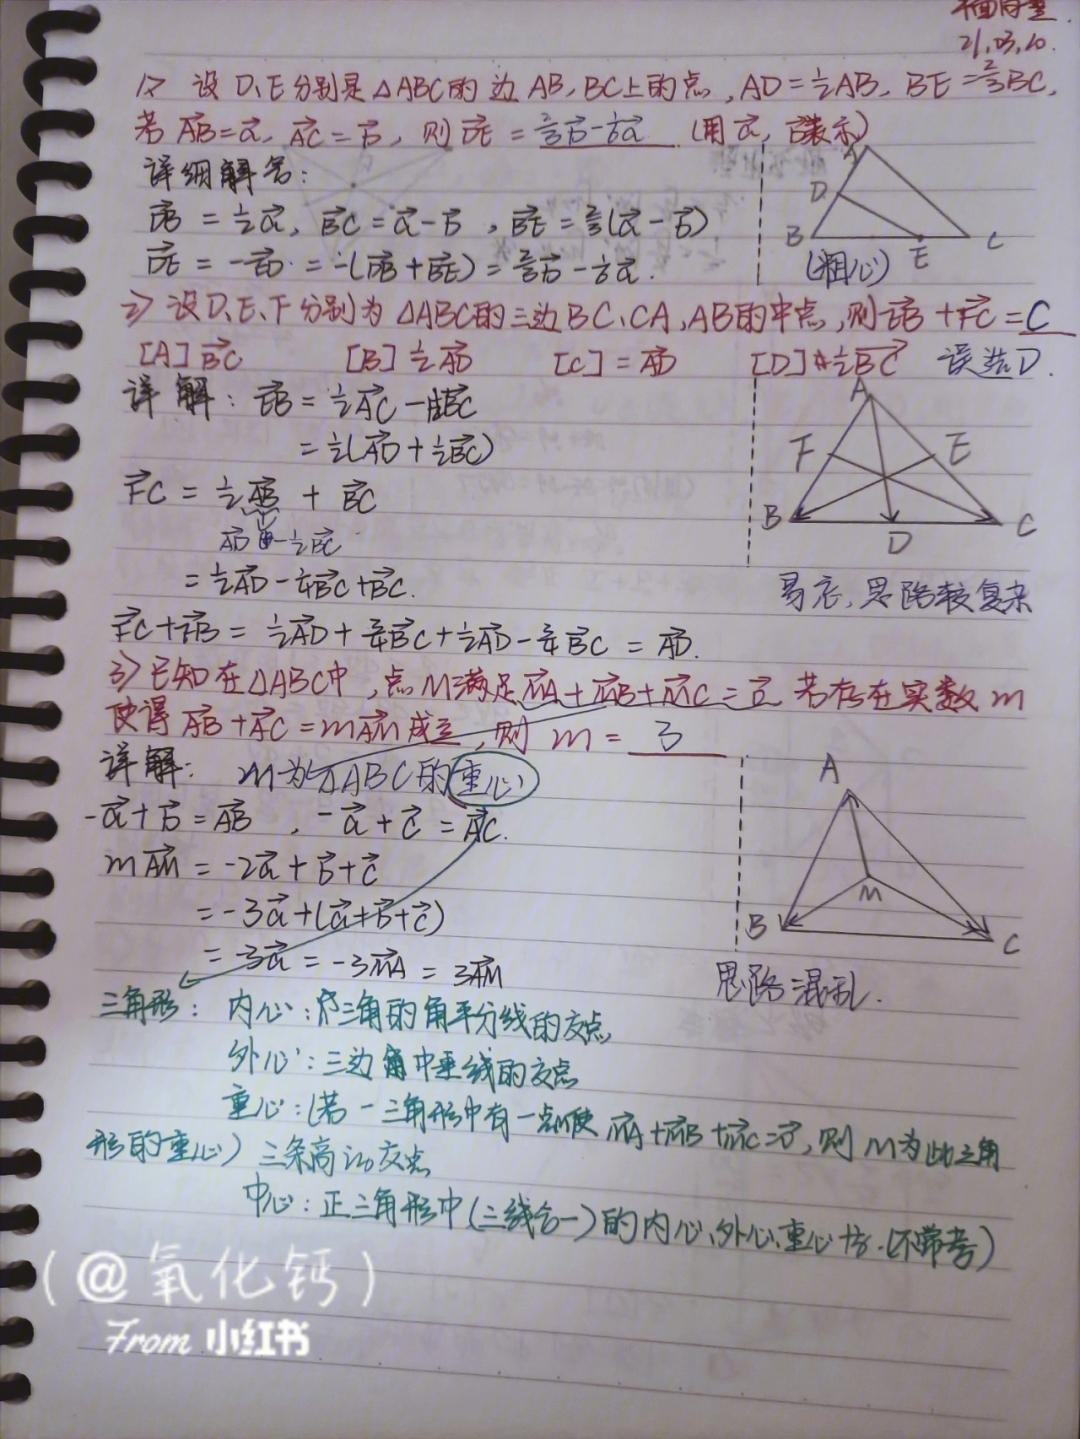 21.03.10.
1> 设D、E分别是△ABC的边AB,BC上的点,AD=½AB, BE=⅔BC,
若AB⃗=a⃗, AC⃗=b⃗, 则DE⃗=⅔b⃗-⅙a⃗ (用a⃗, b⃗表示)
详细解答:
DB⃗=½a⃗, BC⃗=a⃗-b⃗, BE⃗=⅔(a⃗-b⃗)
DE⃗=-ED⃗=-(DB⃗+BE⃗)=⅔b⃗-⅙a⃗.
A
D
B
E
C
(粗心)
2> 设D、E、F分别为△ABC的三边BC、CA,AB的中点,则EB⃗+FC⃗=C
[A] BC⃗ [B] ½AD⃗ [C]=AD⃗ [D] ½BC⃗ 误选D.
详解: EB⃗=½AC⃗-BC⃗
=½(AD⃗+½BC⃗)
FC⃗=½AB⃗+BC⃗
AD⃗-½BC⃗
=½AD⃗-¼BC⃗+BC⃗.
FC⃗+EB⃗=½AD⃗+¾BC⃗+½AD⃗-¾BC⃗=AD⃗.
A
F
E
B
D
C
易忘,思路较复杂
3> 已知在△ABC中,点M满足MA⃗+MB⃗+MC⃗=0⃗ 若存在实数m
使得AB⃗+AC⃗=mAM⃗成立,则m=3
详解: M为△ABC的重心
-a⃗+b⃗=AB⃗, -a⃗+c⃗=AC⃗.
mAM⃗=-2a⃗+b⃗+c⃗
=-3a⃗+(a⃗+b⃗+c⃗)
=-3a⃗=-3MA⃗=3AM⃗
A
M
B
C
思路混乱.
三角形: 内心:三角的角平分线的交点
外心:三边中垂线的交点
重心:(若一三角形中有一点M使MA⃗+MB⃗+MC⃗=0⃗,则M为此三角
形的重心)三条高的交点
中心:正三角形中(三线合一)的内心、外心、重心 .(不常考)
(@氧化钙)
From 小红书